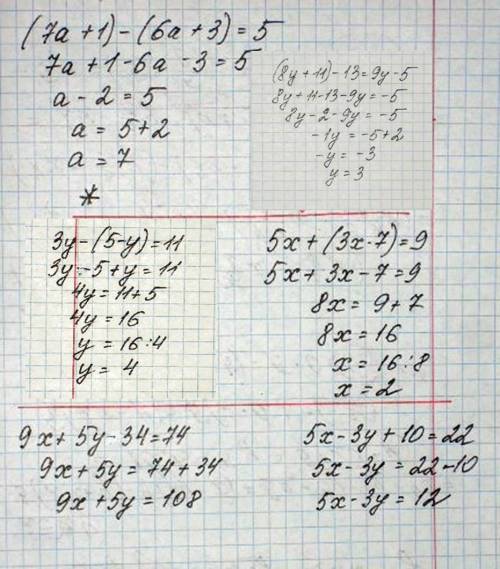 (7a+1)-(6a+3)=5
7a+1-6a-3=5
a-2=5
a=5+2
a=7
*
(8y+11)-13=9y-5
8y+11-13-9y=-5
8y-2-9y=-5
-1y=-5+2
-y=-3
y=3
3y-(5-y)=11
3y-5+y=11
4y=11+5
4y=16
y=16:4
y=4
5x+(3x-7)=9
5x+3x-7=9
8x=9+7
8x=16
x=16:8
x=2
9x+5y-34=74
9x+5y=74+34
9x+5y=108
5x-3y+10=22
5x-3y=22-10
5x-3y=12